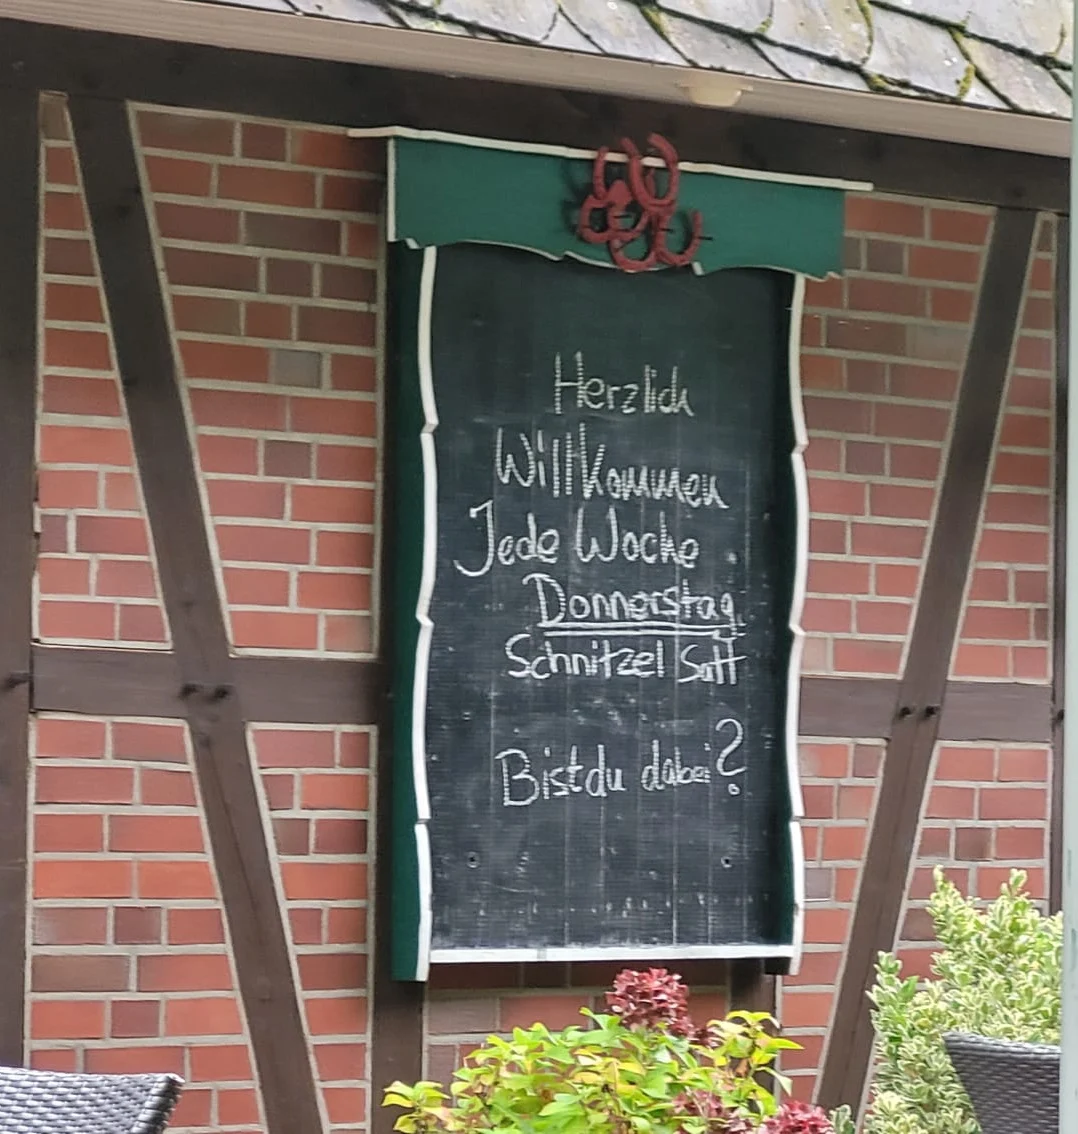 Herzlich
Willkommen
Jede Woche
Donnerstag
Schnitzel Satt
Bist du dabei?